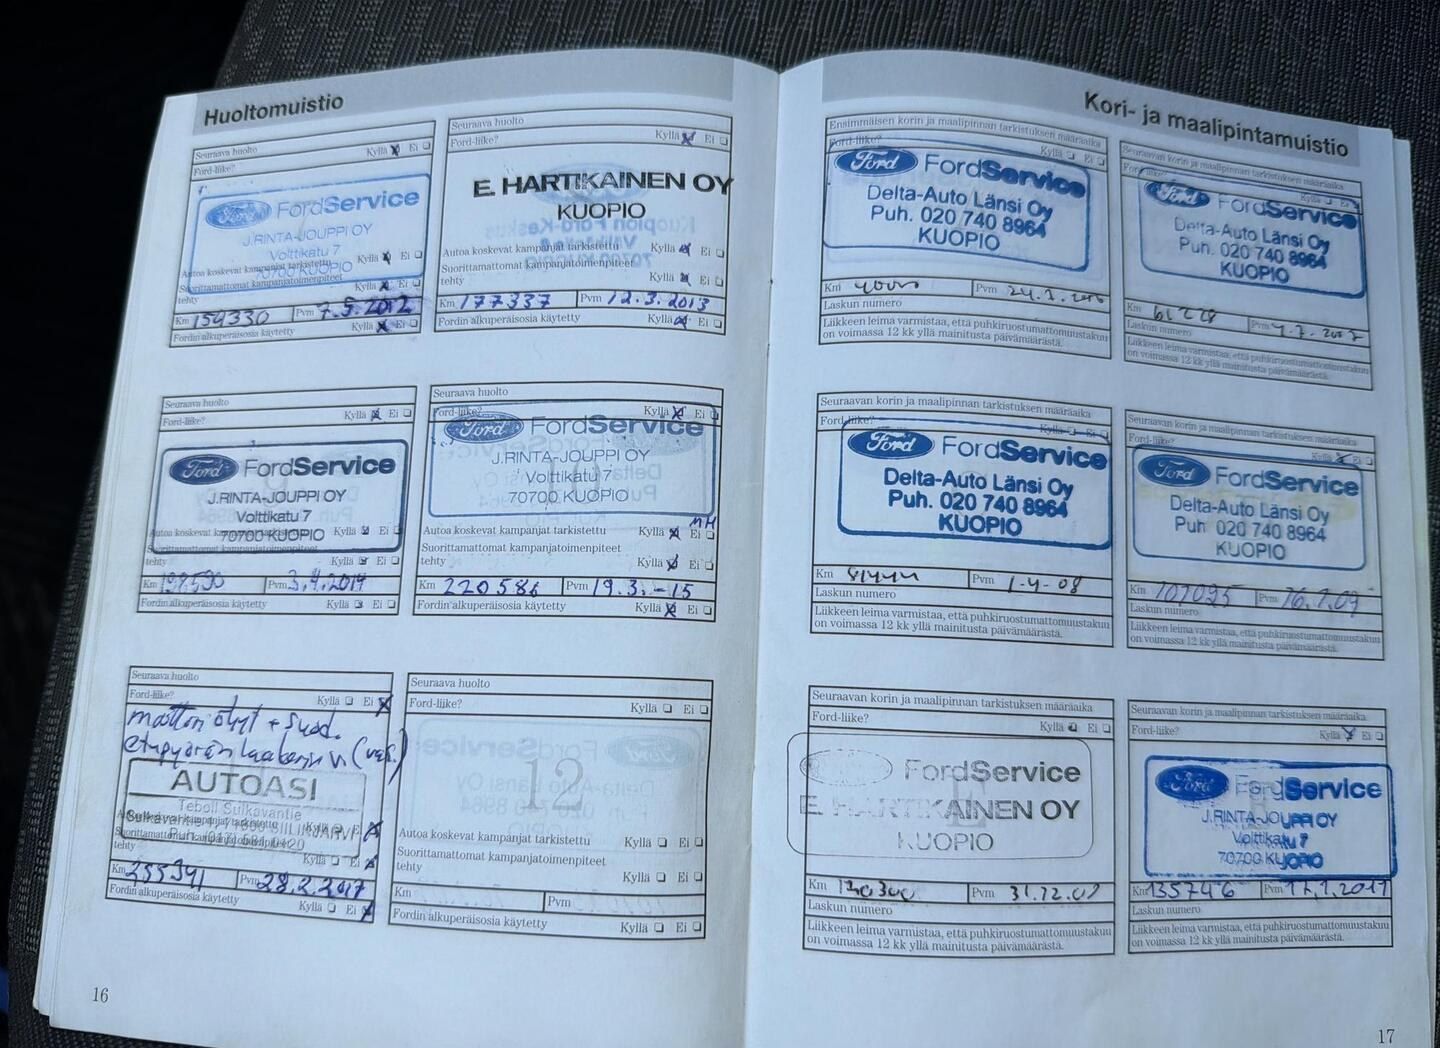 Huoltomuistio
Seuraava huolto
Ford-liike? Kyllä Ei
Ford FordService
J.RINTA-JOUPPI OY
Volttikatu 7
70700 KUOPIO
Autoa koskevat kampanjat tarkistettu Kyllä Ei
Suorittamattomat kampanjatoimenpiteet
tehty Kyllä Ei
Km 159330 Pvm 7.5.2012
Fordin alkuperäisosia käytetty Kyllä Ei
Seuraava huolto
Ford-liike? Kyllä Ei
E. HARTIKAINEN OY
KUOPIO
Autoa koskevat kampanjat tarkistettu Kyllä Ei
Suorittamattomat kampanjatoimenpiteet
tehty Kyllä Ei
Km 177337 Pvm 12.3.2013
Fordin alkuperäisosia käytetty Kyllä Ei
Seuraava huolto
Ford-liike? Kyllä Ei
Ford FordService
J.RINTA-JOUPPI OY
Volttikatu 7
70700 KUOPIO
Autoa koskevat kampanjat tarkistettu Kyllä Ei
Suorittamattomat kampanjatoimenpiteet
tehty Kyllä Ei
Km Pvm 3.4.2014
Fordin alkuperäisosia käytetty Kyllä Ei
Seuraava huolto
Ford-liike? Kyllä Ei
Ford FordService
J.RINTA-JOUPPI OY
Volttikatu 7
70700 KUOPIO
MH
Autoa koskevat kampanjat tarkistettu Kyllä Ei
Suorittamattomat kampanjatoimenpiteet
tehty Kyllä Ei
Km 220586 Pvm 19.3.-15
Fordin alkuperäisosia käytetty Kyllä Ei
Seuraava huolto
Ford-liike? Kyllä Ei
moottori öljyt + suod.
etupyörän laakerin v.
AUTOASI
Teboil Sulkavantie
Autoa koskevat kampanjat tarkistettu Kyllä Ei
Suorittamattomat kampanjatoimenpiteet
tehty Kyllä Ei
Km 255391 Pvm 28.2.2017
Fordin alkuperäisosia käytetty Kyllä Ei
Seuraava huolto
Ford-liike? Kyllä Ei
12
Autoa koskevat kampanjat tarkistettu Kyllä Ei
Suorittamattomat kampanjatoimenpiteet
tehty Kyllä Ei
Km Pvm
Fordin alkuperäisosia käytetty Kyllä Ei
16
Kori- ja maalipintamuistio
Ensimmäisen korin ja maalipinnan tarkistuksen määräaika
Ford-liike? Kyllä Ei
Ford FordService
Delta-Auto Länsi Oy
Puh. 020 740 8964
KUOPIO
Km Pvm
Laskun numero
Liikkeen leima varmistaa, että puhkiruostumattomuustakuu
on voimassa 12 kk yllä mainitusta päivämäärästä.
Seuraavan korin ja maalipinnan tarkistuksen määräaika
Ford-liike? Kyllä Ei
Ford FordService
Delta-Auto Länsi Oy
Puh. 020 740 8964
KUOPIO
Km 61228 Pvm
Laskun numero
Liikkeen leima varmistaa, että puhkiruostumattomuustakuu
on voimassa 12 kk yllä mainitusta päivämäärästä.
Seuraavan korin ja maalipinnan tarkistuksen määräaika
Ford-liike? Kyllä Ei
Ford FordService
Delta-Auto Länsi Oy
Puh. 020 740 8964
KUOPIO
Km Pvm 1-4-08
Laskun numero
Liikkeen leima varmistaa, että puhkiruostumattomuustakuu
on voimassa 12 kk yllä mainitusta päivämäärästä.
Seuraavan korin ja maalipinnan tarkistuksen määräaika
Ford-liike? Kyllä Ei
Ford FordService
Delta-Auto Länsi Oy
Puh 020 740 8964
KUOPIO
Km 107095 Pvm 16.1.09
Laskun numero
Liikkeen leima varmistaa, että puhkiruostumattomuustakuu
on voimassa 12 kk yllä mainitusta päivämäärästä.
Seuraavan korin ja maalipinnan tarkistuksen määräaika
Ford-liike? Kyllä Ei
FordService
E. HARTIKAINEN OY
KUOPIO
Km Pvm
Laskun numero
Liikkeen leima varmistaa, että puhkiruostumattomuustakuu
on voimassa 12 kk yllä mainitusta päivämäärästä.
Seuraavan korin ja maalipinnan tarkistuksen määräaika
Ford-liike? Kyllä Ei
Ford FordService
J.RINTA-JOUPPI OY
Volttikatu 7
70700 KUOPIO
Km 135746 Pvm
Laskun numero
Liikkeen leima varmistaa, että puhkiruostumattomuustakuu
on voimassa 12 kk yllä mainitusta päivämäärästä.
17